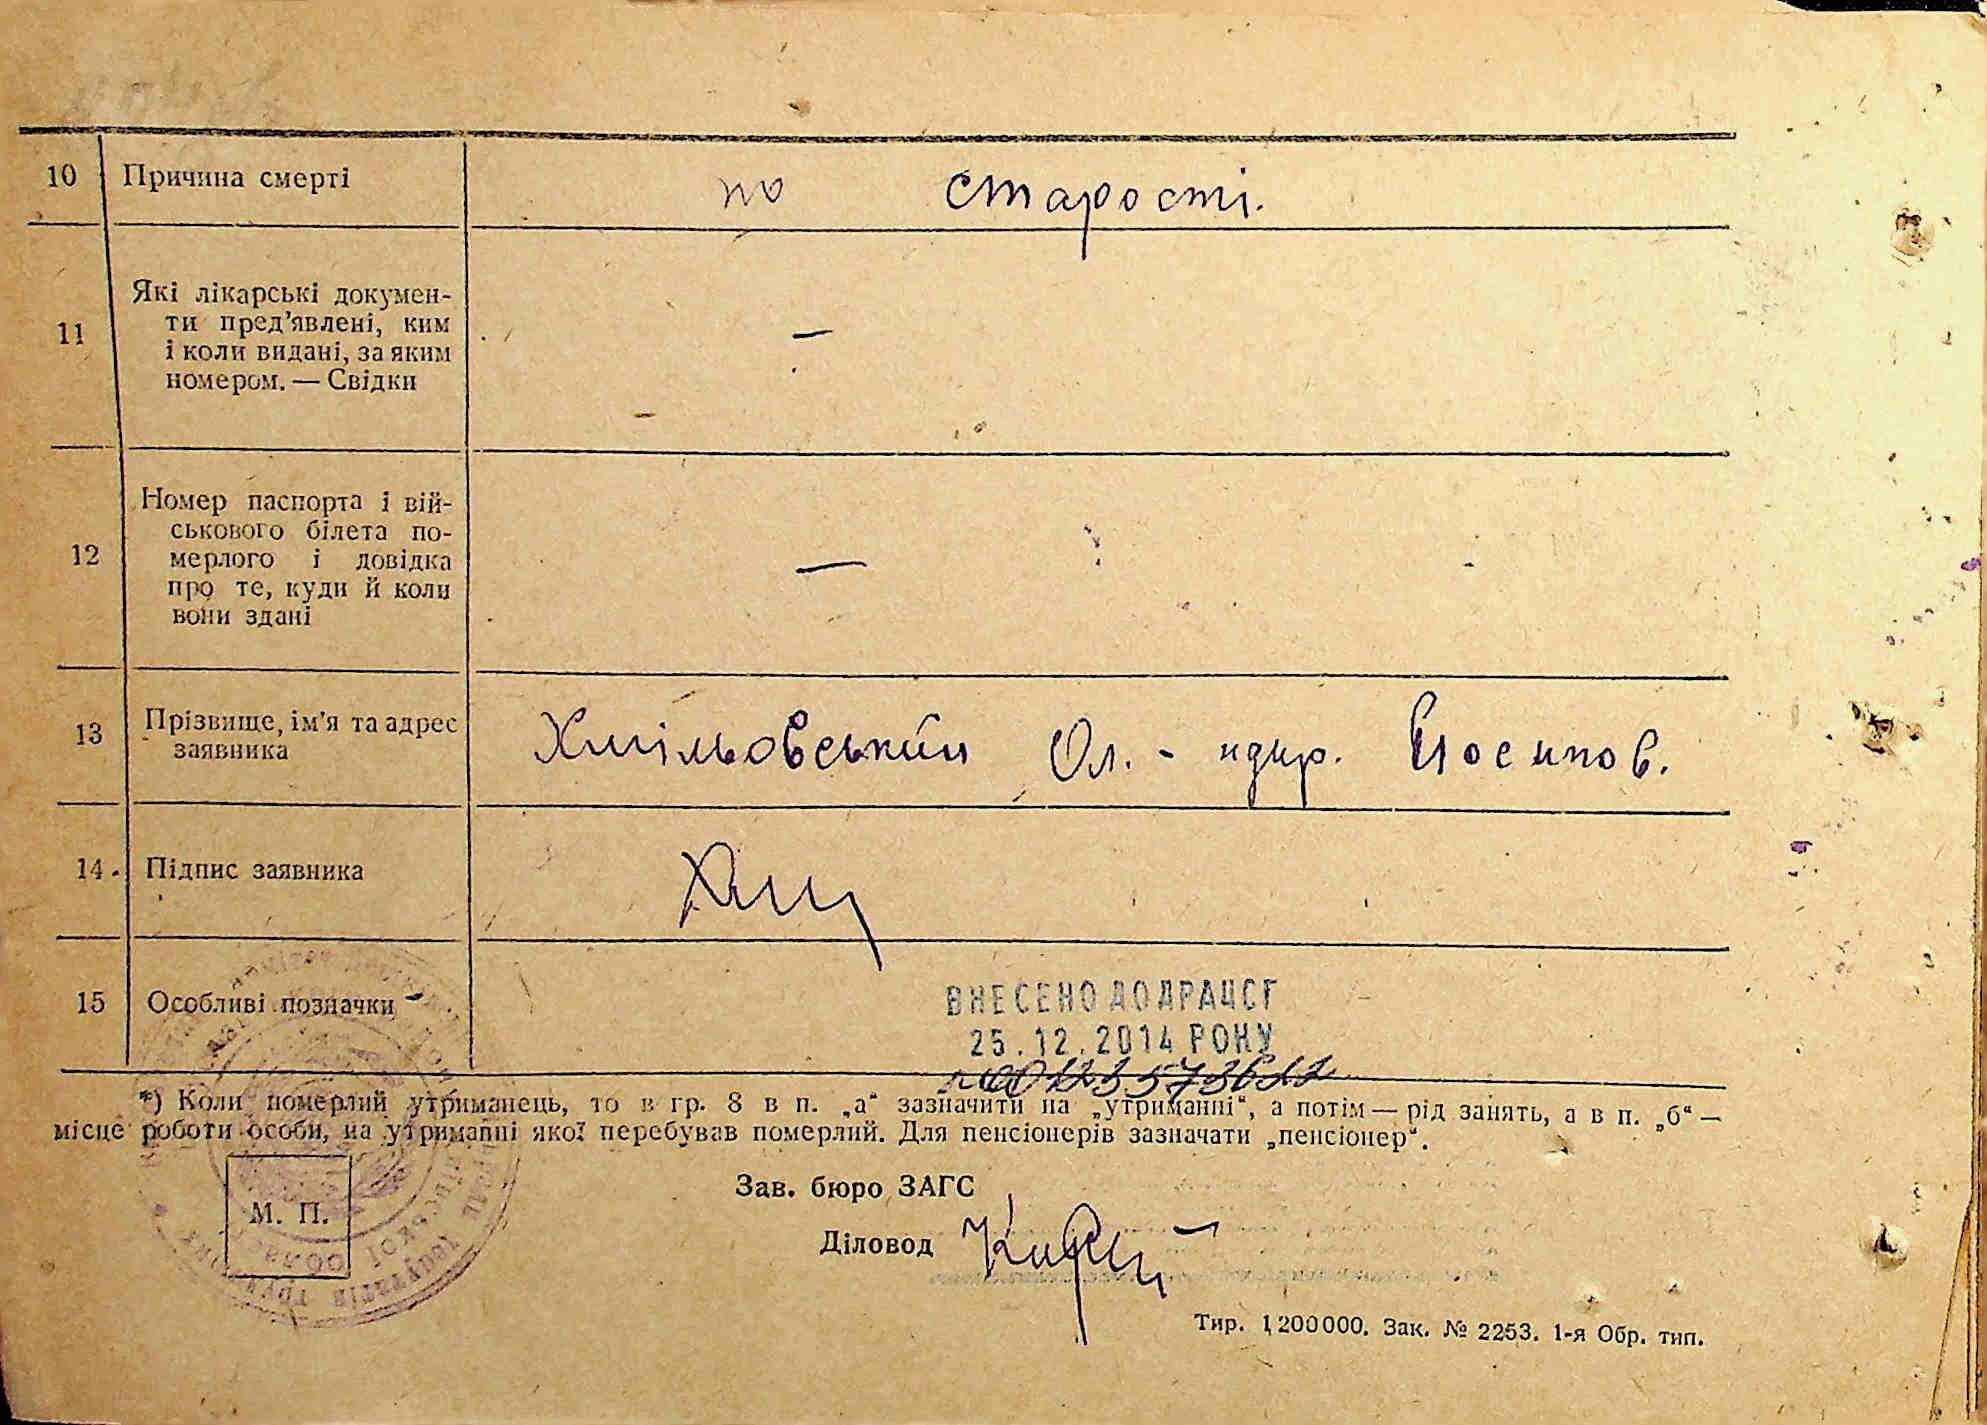 10 Причина смерті по старості.
11 Які лікарські докумен-
ти пред'явлені, ким
і коли видані, за яким
номером. — Свідки
—
12 Номер паспорта і вій-
ськового білета по-
мерлого і довідка
про те, куди й коли
вони здані
—
13 Прізвище, ім'я та адрес
заявника
Хмільовський Ол. - ндр. Йосипов.
14 Підпис заявника
15 Особливі позначки
ВНЕСЕНО ДО ДРАЦСГ
25.12.2014 РОКУ
*) Коли померлий утриманець, то в гр. 8 в п. „а“ зазначити на „утриманні“, а потім — рід занять, а в п. „б“ —
місце роботи особи, на утриманні якої перебував померлий. Для пенсіонерів зазначати „пенсіонер“.
Зав. бюро ЗАГС
М. П.
Діловод
Тир. 1,200000. Зак. № 2253. 1-я Обр. тип.